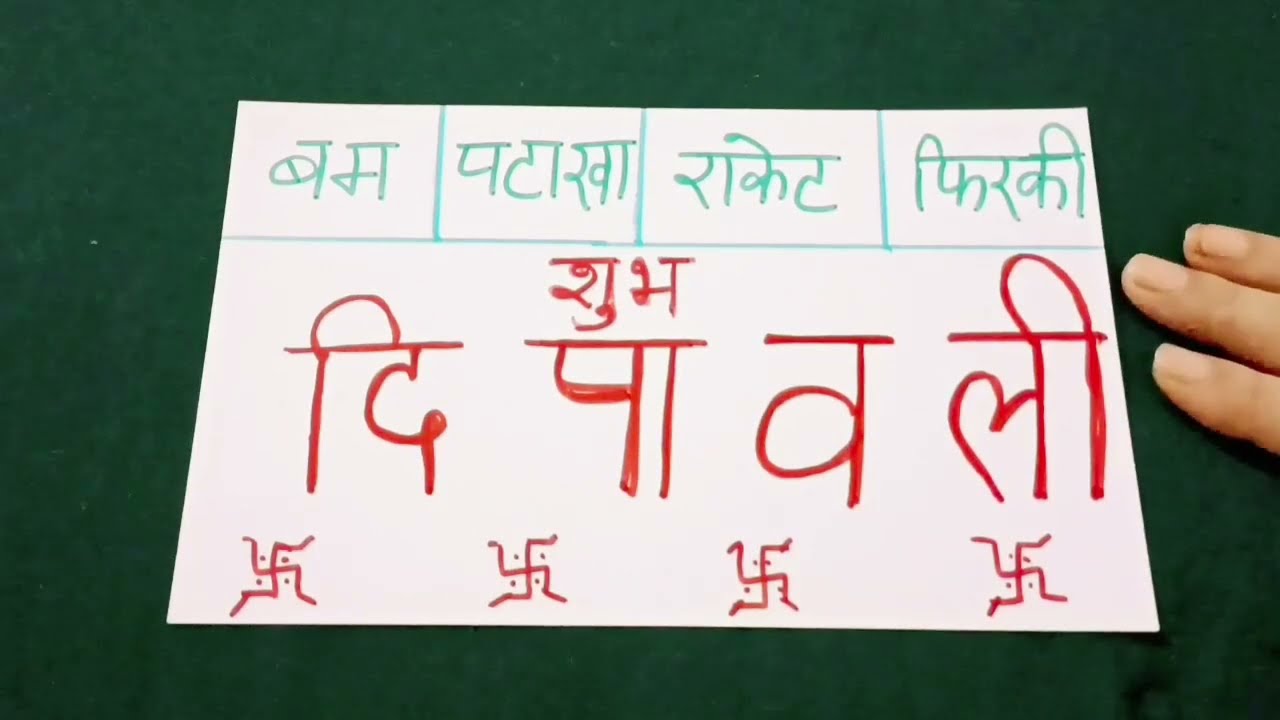 बम पटाखा राकेट फिरकी
शुभ
दि पा व ली